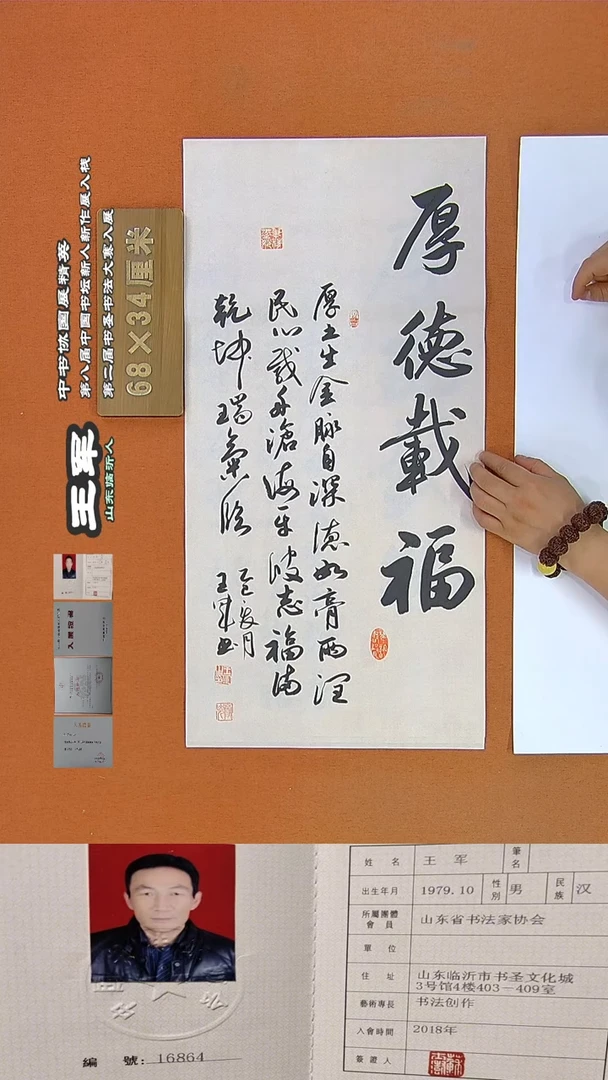 厚德載福
厚土生金脉自深德如膏雨润
民心载舟沧海平波志福满
乾坤瑞气临
王军书
68×34厘米
中书协国展精英
第八届中国书坛新人新作展入展
第二届书圣书法大赛入展
王军
山东临沂人
姓 名 王 军 筆名
出生年月 1979.10 性別 男 民族 汉
所屬團體會員 山东省书法家协会
單 位
住 址 山东临沂市书圣文化城
3号馆4楼403－409室
藝術專長 书法创作
入會時間 2018年
簽證人
編 號：16864